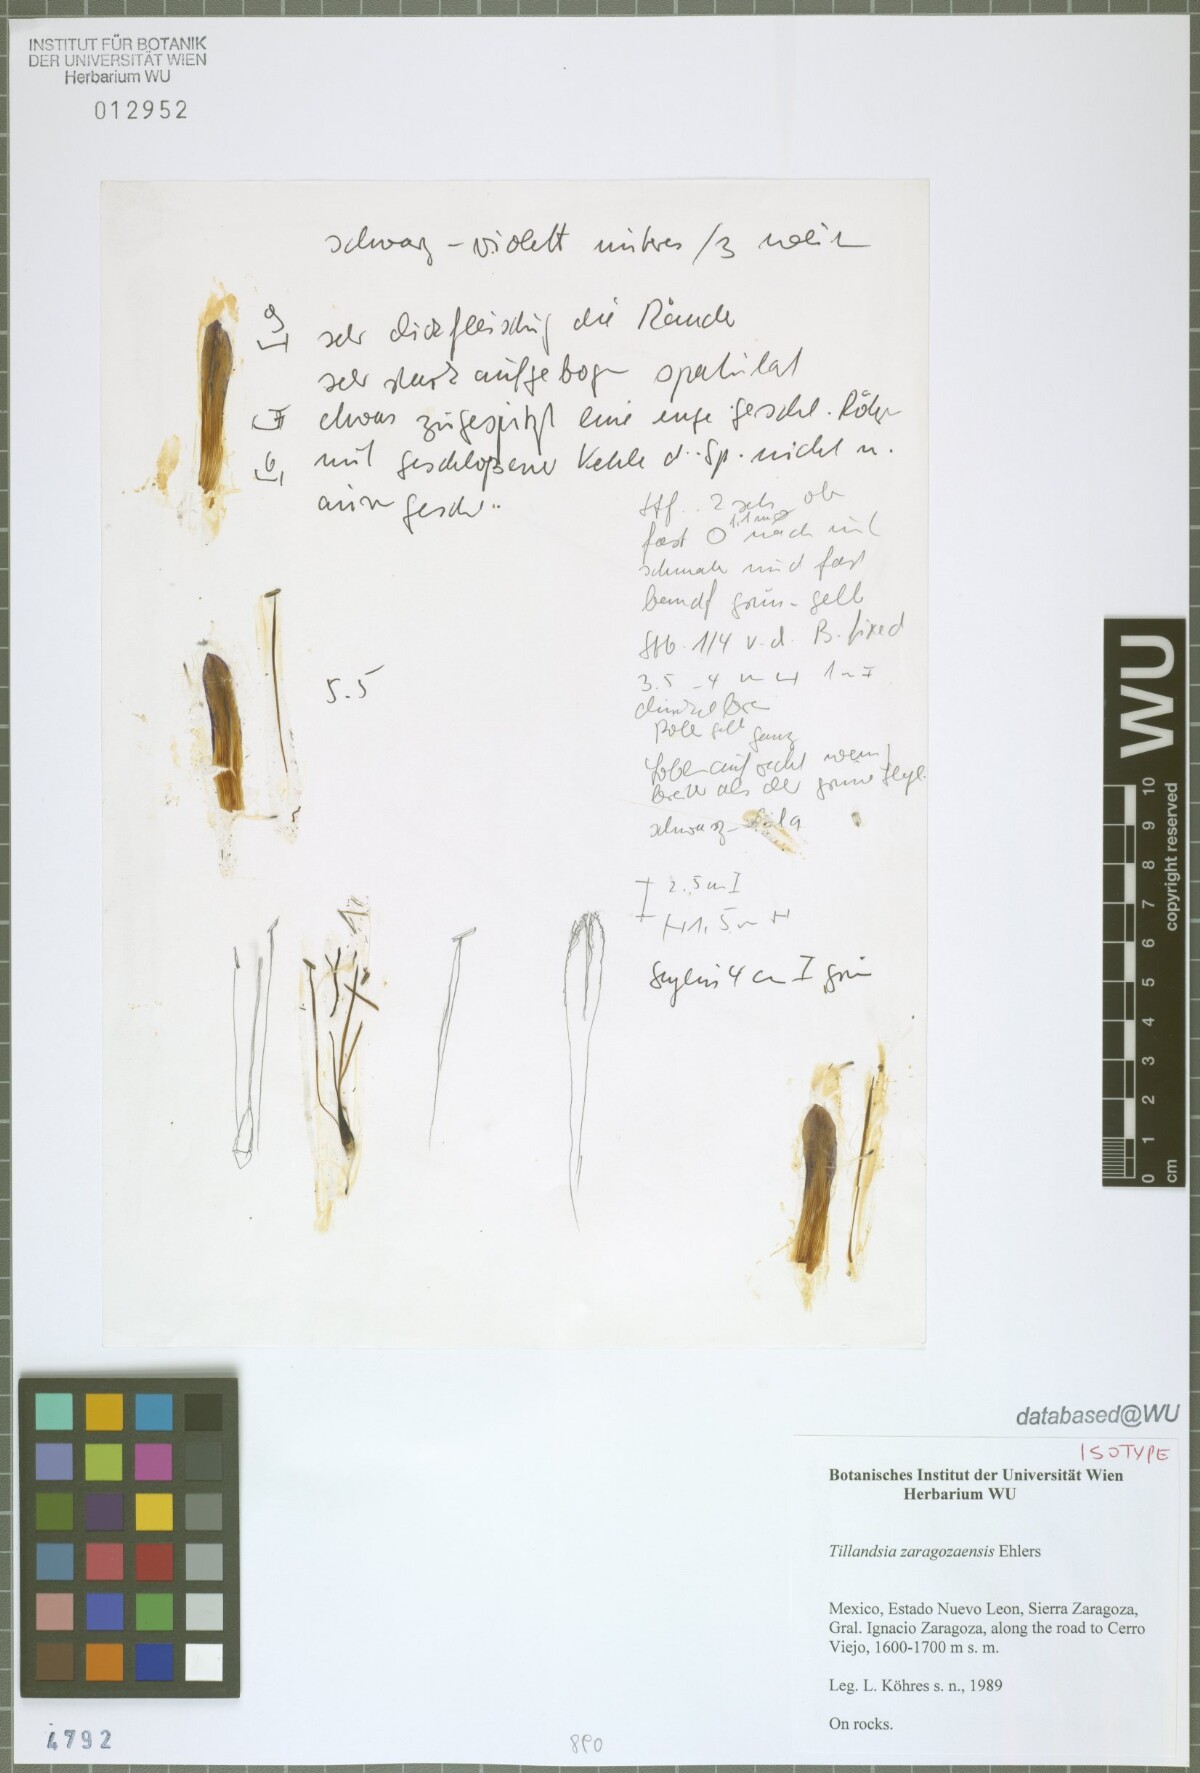 INSTITUT FÜR BOTANIK
DER UNIVERSITÄT WIEN
Herbarium WU
012952
schwarz-violett unteres /3 weiß
sehr dickfleischig die Ränder
sehr stark aufgebogen spatulat
etwas zugespitzt eine enge geschl. Röhre
mit geschloßener Kehle d. Sp. nicht n.
Stf. 2
fast O 1,1 mm nach
schmaler und fast
bandf grün-gelb
Stb. 1/4 v. d. B. fixed
3.5 - 4
Poll gelb ganz
breiter als der grüne
schwarz-lila
5.5
2.5
1,5
4 cm I grün
WU
copyright reserved
10
9
8
7
6
5
4
3
2
1
0
cm
databased@WU
ISOTYPE
Botanisches Institut der Universität Wien
Herbarium WU
Tillandsia zaragozaensis Ehlers
Mexico, Estado Nuevo Leon, Sierra Zaragoza,
Gral. Ignacio Zaragoza, along the road to Cerro
Viejo, 1600-1700 m s. m.
Leg. L. Köhres s. n., 1989
On rocks.
4792
890